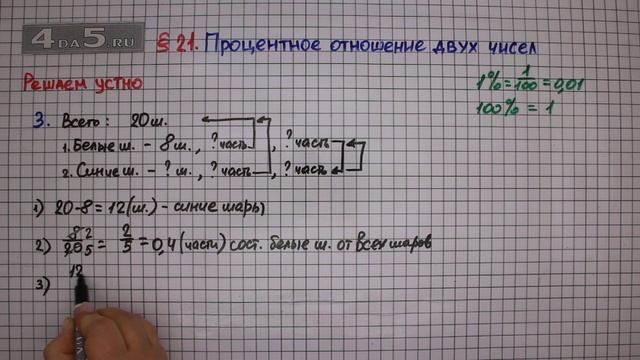 4DA5.RU
§ 21. Процентное отношение двух чисел
Решаем устно
1% = 1/100 = 0,01
100% = 1
3. Всего: 20 ш.
1. Белые ш. - 8 ш., ? часть, ? часть
2. Синие ш. - ? ш., ? часть, ? часть
1) 20-8=12 (ш.) - синие шары
2) 8 2/20 5 = 2/5 = 0,4 (части) сост. белые ш. от всех шаров
3) 12